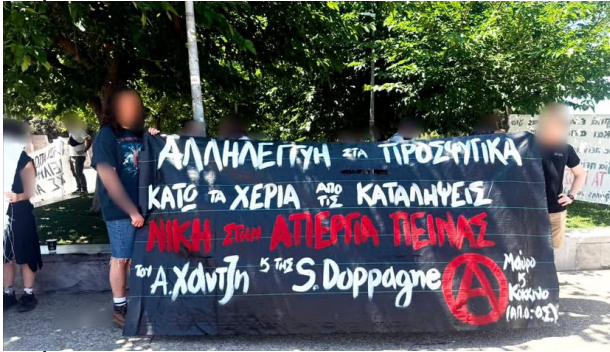 ΑΛΛΗΛΕΓΓΥΗ ΣΤΑ ΠΡΟΣΦΥΓΙΚΑ
ΚΑΤΩ ΤΑ ΧΕΡΙΑ ΑΠΟ ΤΙΣ ΚΑΤΑΛΗΨΕΙΣ
ΝΙΚΗ ΣΤΗΝ ΑΠΕΡΓΙΑ ΠΕΙΝΑΣ
ΤΟΥ Α. ΧΑΝΤΖΗ ϗ ΤΗΣ S. Doppagne
Μαύρο
ϗ
Κόκκινο
(ΑΠΟ-ΟΣ)